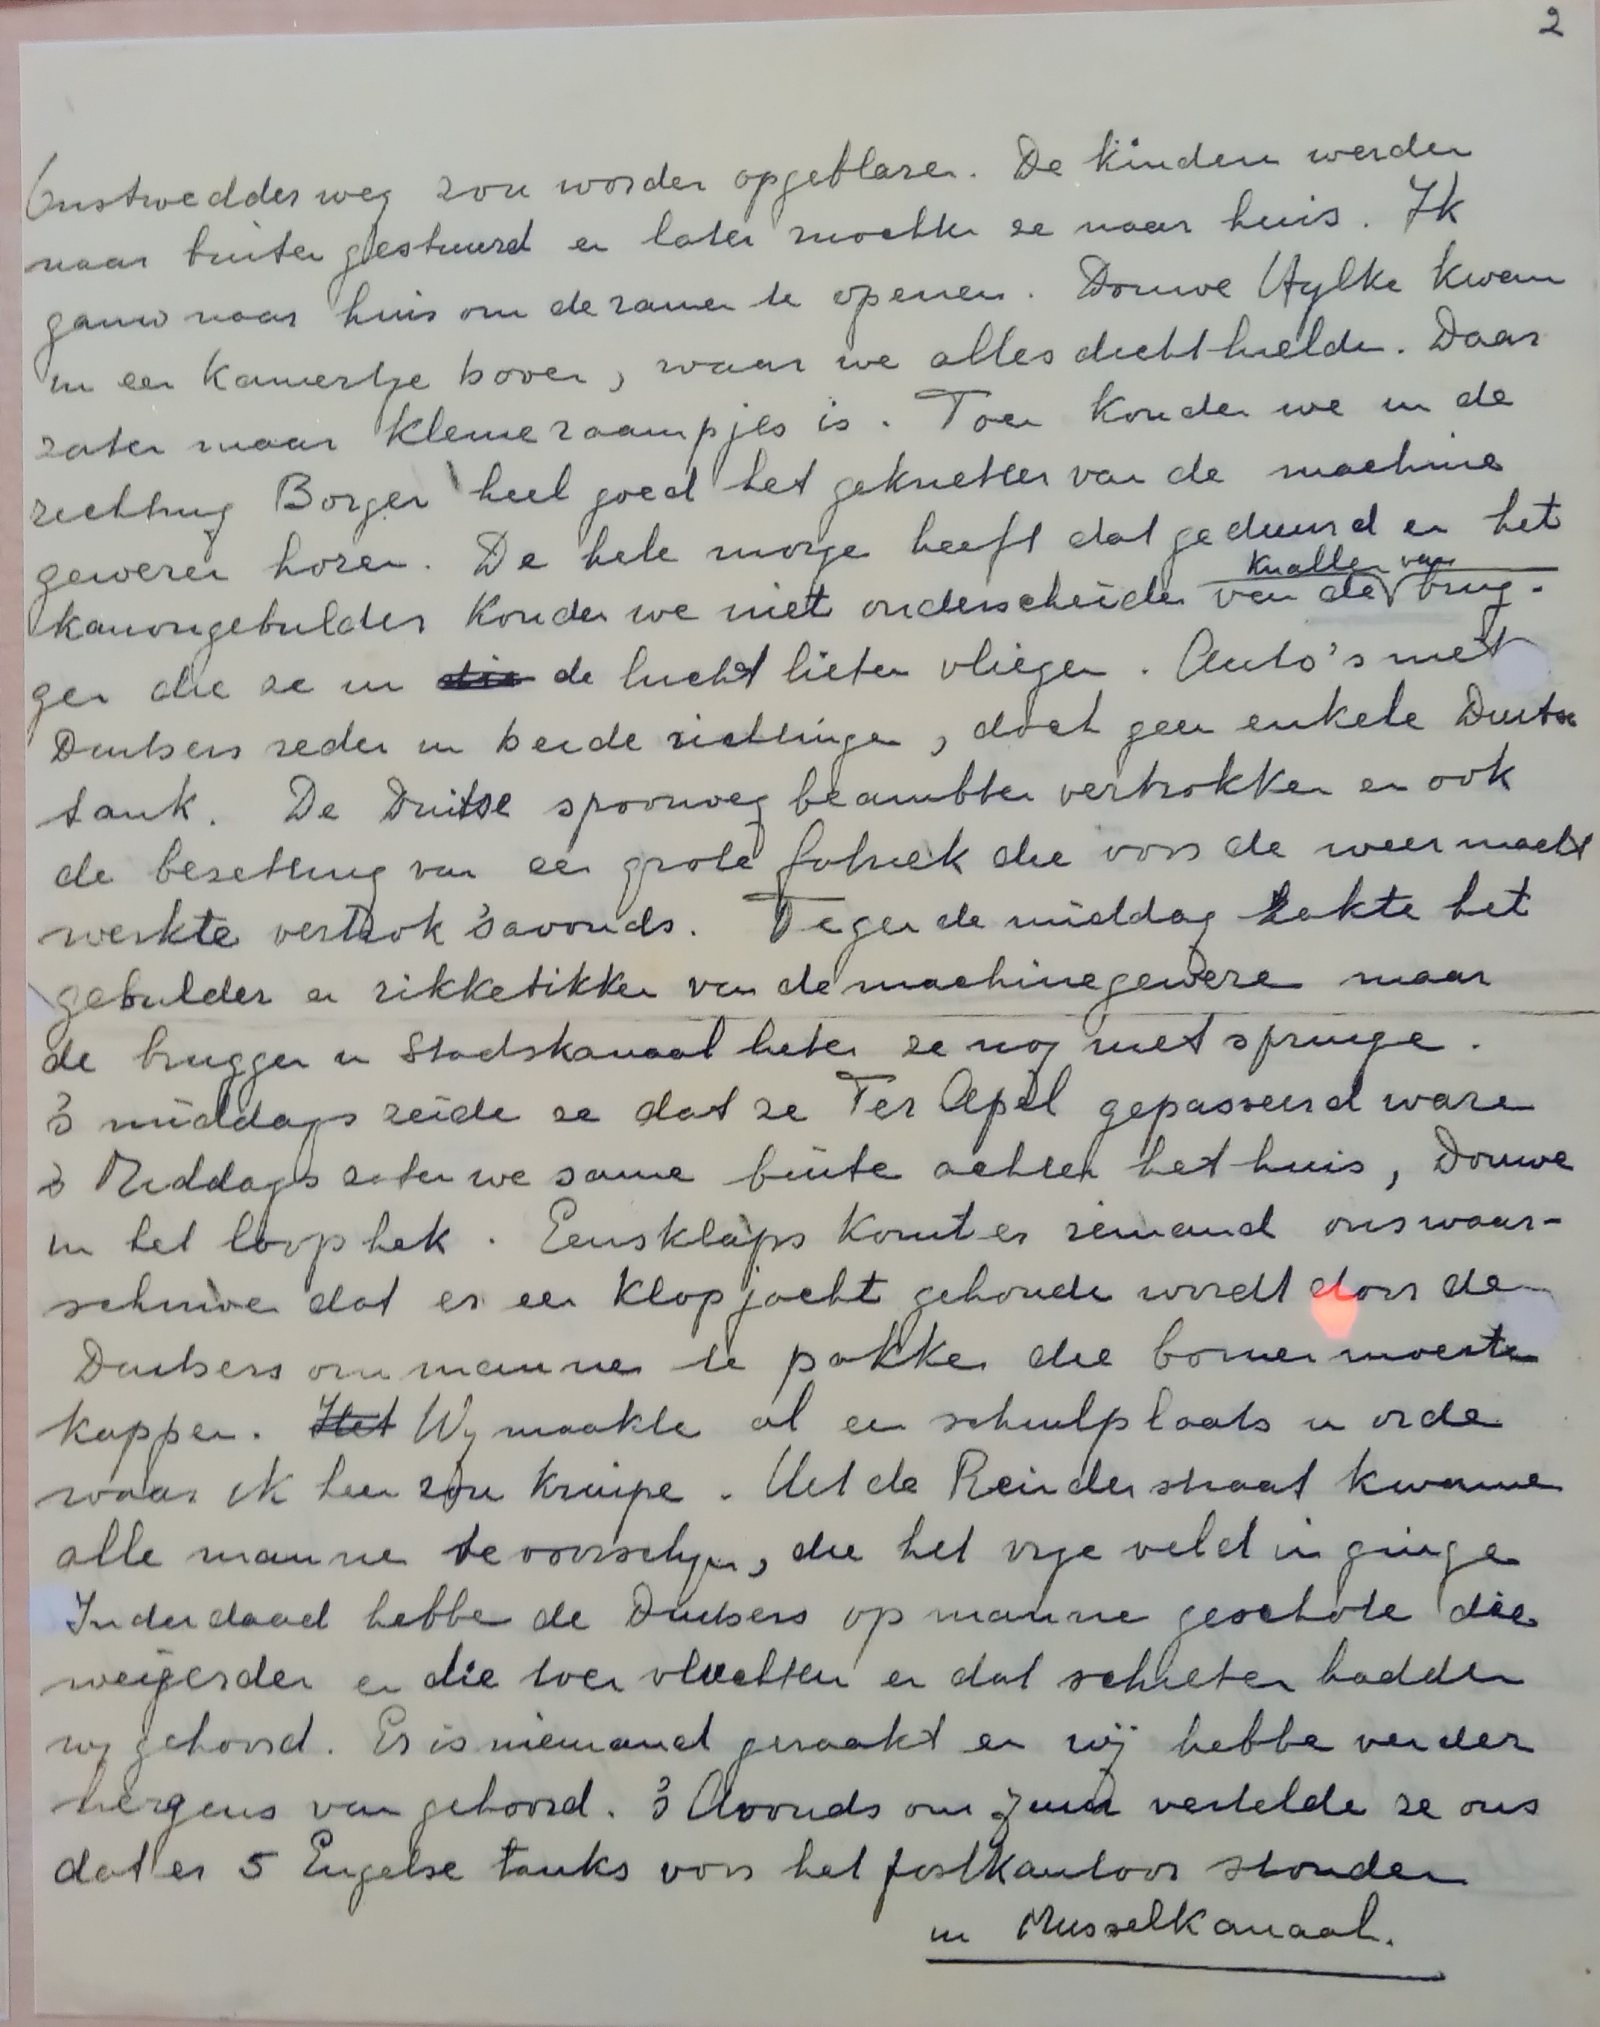 2
Onstwedderweg zou worden opgeblazen. De kinderen werden
naar buiten gestuurd en later mochten ze naar huis. Ik
gauw naar huis om de ramen te openen. Douwe Aylke kwam
in een kamertje boven, waar we alles dicht hielden. Daar
zaten maar kleine raampjes is. Toen konden we in de
richting Borger heel goed het geknetter van de machine
geweren horen. De hele morge heeft dat geduurd en het
kanongebulder konden we niet onderscheiden van de knallen van brug-
gen die ze in die de lucht lieten vliegen. Auto's met
Duitsers reden in beide richtingen, doch geen enkele Duitse
tank. De Duitse spoorweg beambten vertrokken en ook
de bezetting van een grote fabriek die voor de weermacht
werkte vertrok 's avonds. Tegen de middag zakte het
gebulder en rikketikken van de machinegewere maar
de bruggen in Stadskanaal lieten ze nog niet springe.
's middags zeide ze dat ze Ter Apel gepasseerd ware
's Middags zaten we same buite achter het huis, Douwe
in het loophek. Eensklaps komt er iemand ons waar-
schuwen dat er een klopjacht gehoude wordt door de
Duitsers om mannen te pakken die bomen moesten
kappen. Het Wij maakte al een schuilplaats in orde
waar ik heen zou kruipe. Uit de Reinderstraat kwamme
alle manne te voorschijn, die het vrije veld in ginge
Inderdaad hebbe de Duitsers op manne geschote die
weigerden en die toen vluchtten en dat schieten hadden
wij gehoord. Er is niemand geraakt en wij hebbe verder
nergens van gehoord. 's Avonds om 7 uur vertelde ze ons
dat er 5 Engelse tanks voor het postkantoor stonden
in Musselkanaal.